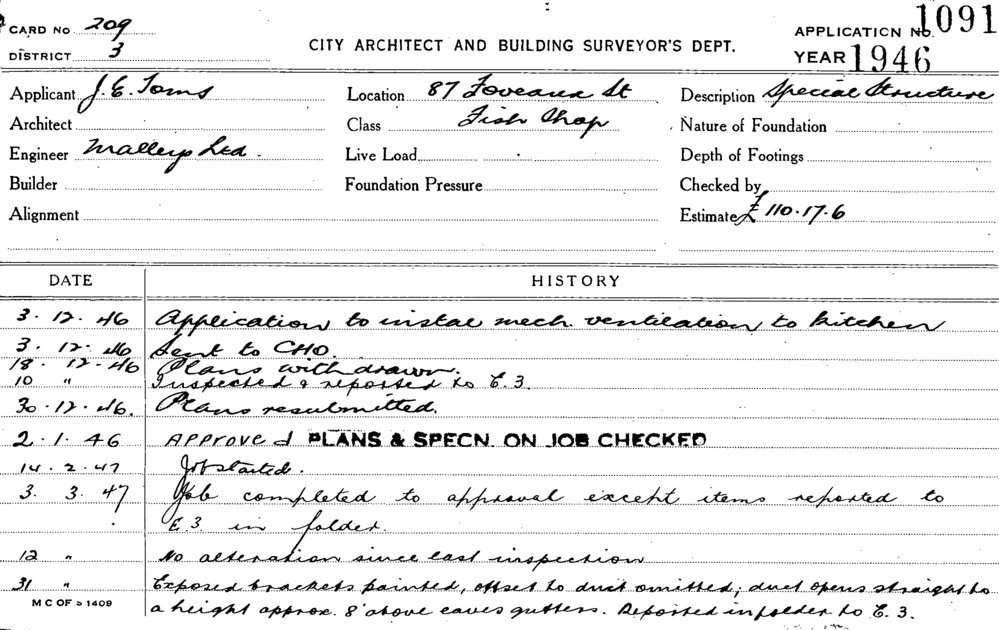 CARD No 209
DISTRICT 3
CITY ARCHITECT AND BUILDING SURVEYOR'S DEPT.
APPLICATION No. 1091
YEAR 1946
Applicant J. E. Toms
Location 87 Foveaux St
Description Special Structure
Architect
Class Fish Shop
Nature of Foundation
Engineer Malleys Ltd.
Live Load
Depth of Footings
Builder
Foundation Pressure
Checked by
Alignment
Estimate £110.17.6
DATE HISTORY
3.12.46 Application to instal mech. ventilation to kitchen
3.12.46 Sent to CHO.
18.12.46 Plans withdrawn.
10 " Inspected & reported to E.3.
30.12.46. Plans resubmitted.
2.1.46 APPROVEd PLANS & SPECN. ON JOB CHECKED
14.2.47 Job started.
3.3.47 Job completed to approval except items reported to
E.3. in folder.
12 " No alteration since last inspection
31 " Exposed brackets painted, offset to duct omitted, duct opens straight to
a height approx. 8' above eaves gutters. Reported in folder to E.3.
M C OF S 1409